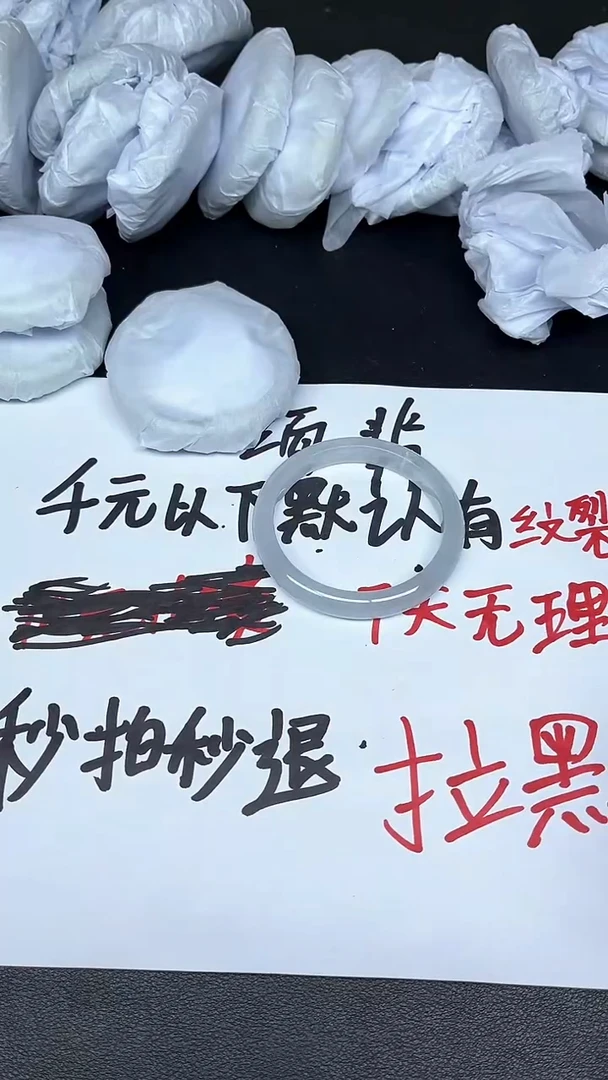 千元以下默认有纹裂
7天无理
秒拍秒退 拉黑